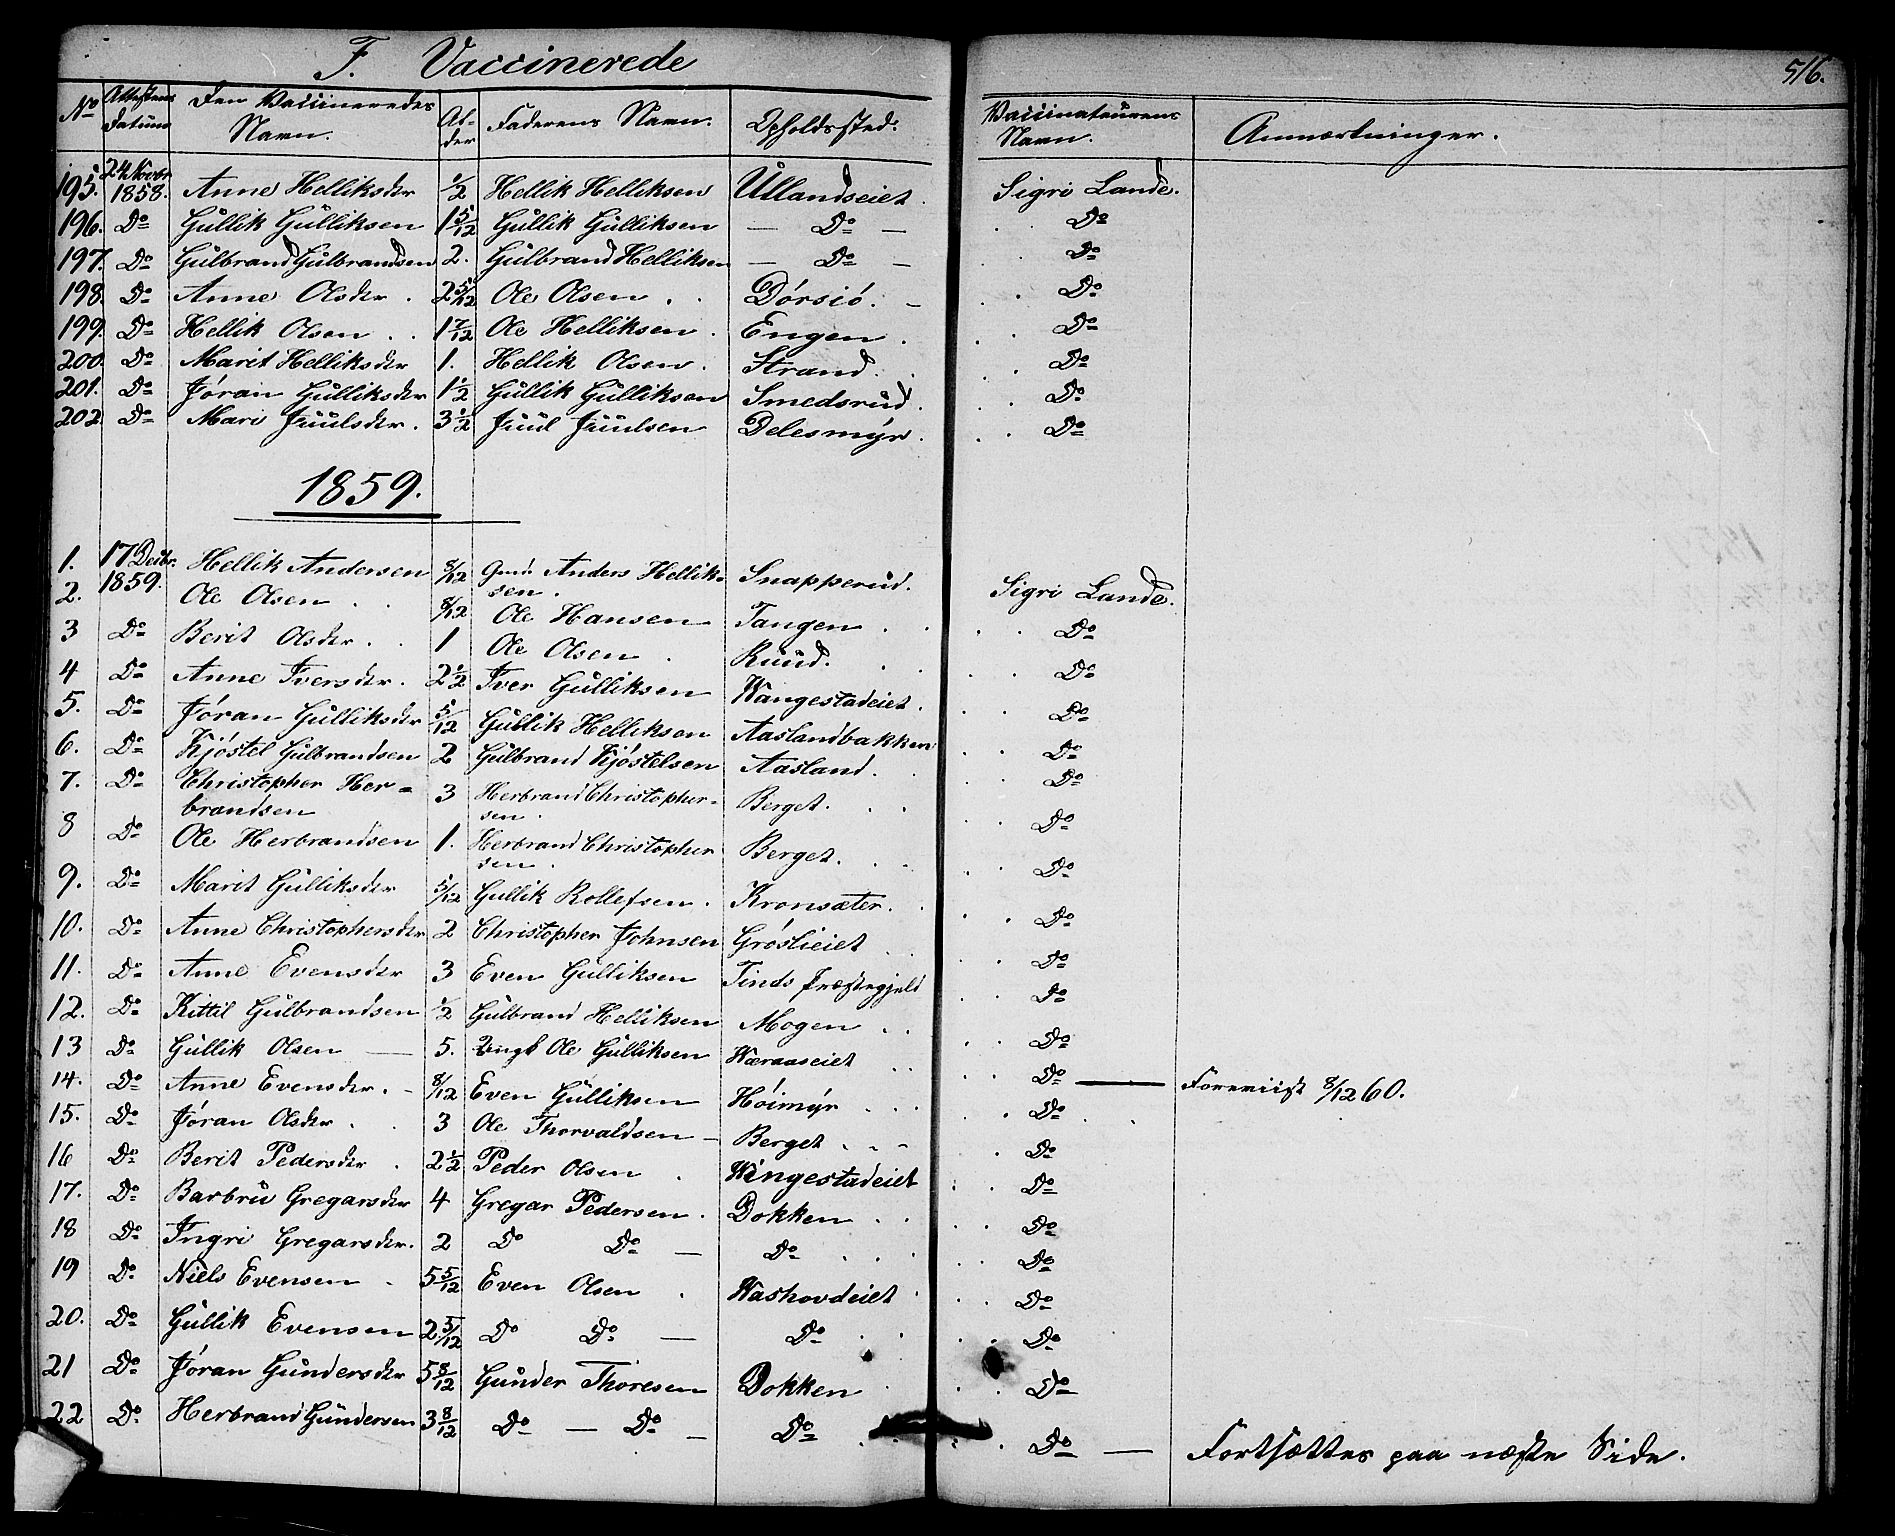 F. Vaccinerede
516.
No Attestens Datum Den Vaccineredes Navn. Al-der Faderens Navn. Opholdssted. Vaccinateurens Navn. Anmærkninger.
195. 24 Novbr 1858. Anne Helliksder 1/2 Hellik Helliksen Ullandseiet. Sigri Lande.
196. Do Gullik Gulliksen 1 5/12 Gullik Gulliksen — Do — Do
197. Do Gulbrand Gulbrandsen 2. Gulbrand Helliksen — Do — Do
198. Do Anne Olsder. 2 5/12 Ole Olsen Dørsiø. Do
199. Do Hellik Olsen 1 7/12 Ole Helliksen Engen. Do
200. Do Marit Helliksder 1. Hellik Olsen. Strand. Do
201. Do Jøran Gulliksder 1 1/2 Gullik Gulliksen Smedsrud. Do
202. Do Mari Juulsder. 3 1/2 Juul Juulsen Delesmyr. Do
1859.
1. 17 Decbr. 1859. Hellik Andersen 8/12 Gmd. Anders Hellik-sen. Snapperud. Sigri Lande.
2. Ole Olsen 8/12 Ole Hansen Tangen Do
3 Do Berit Olsder. 1 Ole Olsen Ruud. Do
4 Do Anne Iversder. 2 1/2 Iver Gulliksen Wangestadeiet. Do
5. Do Jøran Gulliksder 5/12 Gullik Helliksen Aaslandbakken Do
6. Do Kjøstel Gulbrandsen 2 Gulbrand Kjøstelsen Aasland. Do
7. Do Christopher Her-brandsen 3 Herbrand Christopher-sen. Berget. Do
8 Do Ole Herbrandsen 1. Herbrand Christopher sen. Berget. Do
9. Do Marit Gulliksder 5/12 Gullik Rollefsen. Kronsæter. Do
10. Do Anne Christophersder 2 Christopher Johnsen Grøslieiet Do
11. Do Anne Evensder 3 Even Gulliksen Tinds Præstegjeld Do
12. Do Kittil Gulbrandsen 1/2 Gulbrand Helliksen Mogen Do
13 Do Gullik Olsen — 5. Ungk Ole Gulliksen Wæraaseiet Do
14. Do Anne Evensder. 8/12 Even Gulliksen Høimyr Do — Foreviist 8/12 60.
15. Do Jøran Olsder 3 Ole Thorvaldsen — Berget Do
16 Do Berit Pedersder 2 1/2 Peder Olsen Wingestadeiet Do
17. Do Barbru Gregarsder 4 Gregar Pedersen. Dokken Do
18 Do Ingri Gregarsder. 2 Do Do — Do Do
19 Do Niels Evensen 5 5/12 Even Olsen Washovdeiet Do
20. Do Gullik Evensen 2 5/12 Do Do — Do Do
21 Do Jøran Gundersder 5 8/12 Gunder Thoresen Dokken Do
22 Do Herbrand Gundersen 3 8/12 Do — Do — Do Do — Fortsættes paa næste Side.